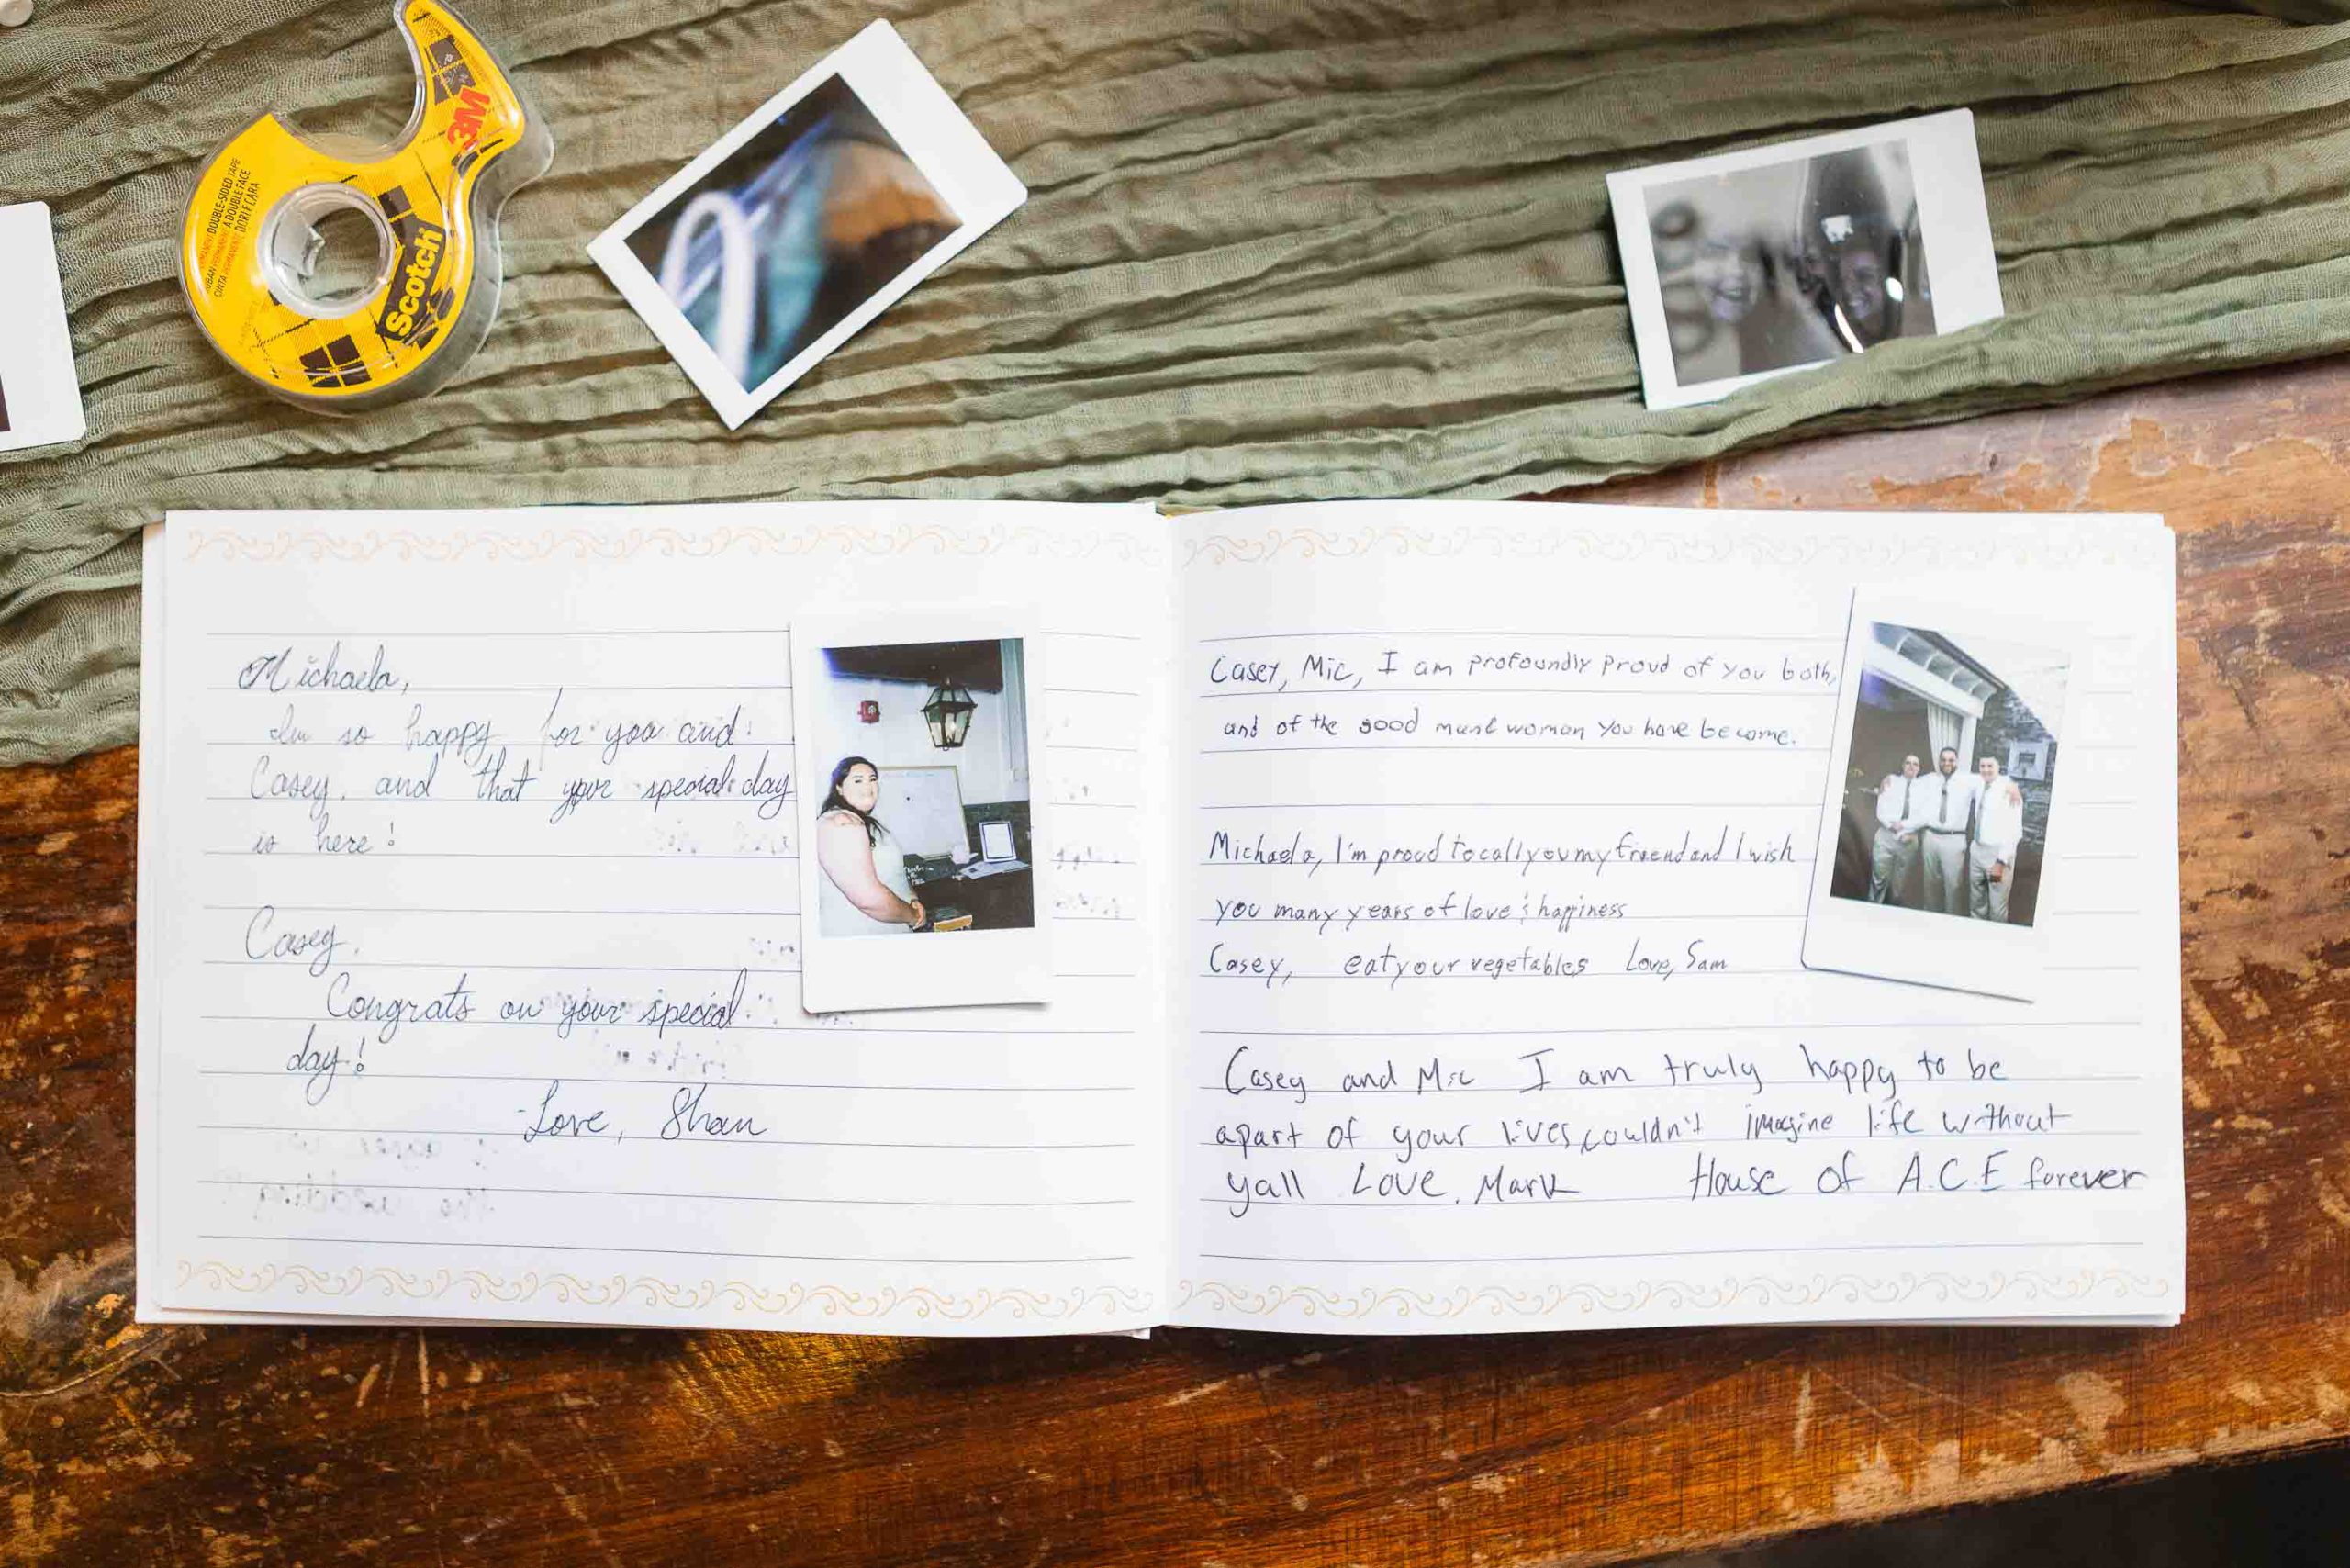 3M
Scotch
DOUBLE-SIDED TAPE
À DOUBLE FACE
Michaela,
so happy for you and
Casey, and that your special day
is here!
Casey,
Congrats on your special
day!
-Love, Shan
Casey, Mic, I am profoundly proud of you both,
and of the good man & woman you have become.
Michaela, I'm proud to call you my friend and I wish
you many years of love & happiness
Casey, eat your vegetables Love, Sam
Casey and Mic I am truly happy to be
apart of your lives, couldn't imagine life without
yall Love, Mark House of A.C.E forever